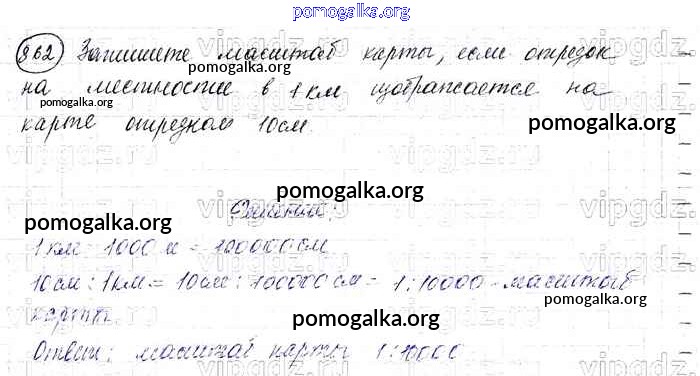 pomogalka.org
862 Запишите масштаб карты, если отрезок
на местности в 1 км изображается на
карте отрезком 10 см.
pomogalka.org
pomogalka.org
pomogalka.org
pomogalka.org
Решение:
1 км = 1000 м = 100000 см
10 см : 1 км = 10 см : 100000 см = 1 : 10000 - масштаб
карты.
pomogalka.org
pomogalka.org
Ответ: масштаб карты 1 : 10000
pomogalka.org
vipgdz.ru
vipgdz.ru
vipgdz.ru
vipgdz.ru